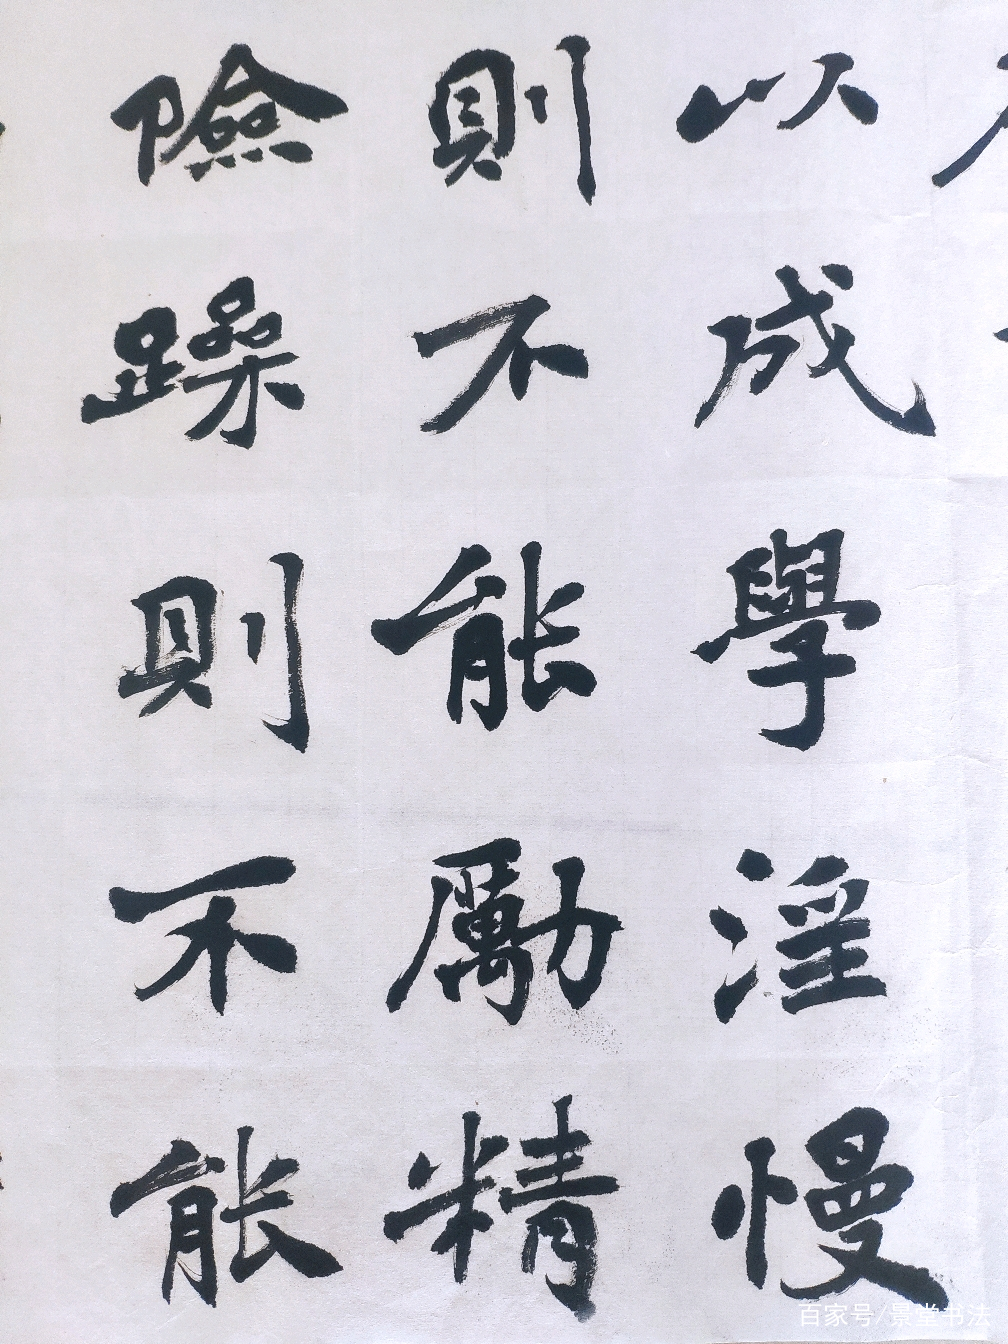 以成學淫慢
則不能勵精
險躁則不能
百家号/景堂书法